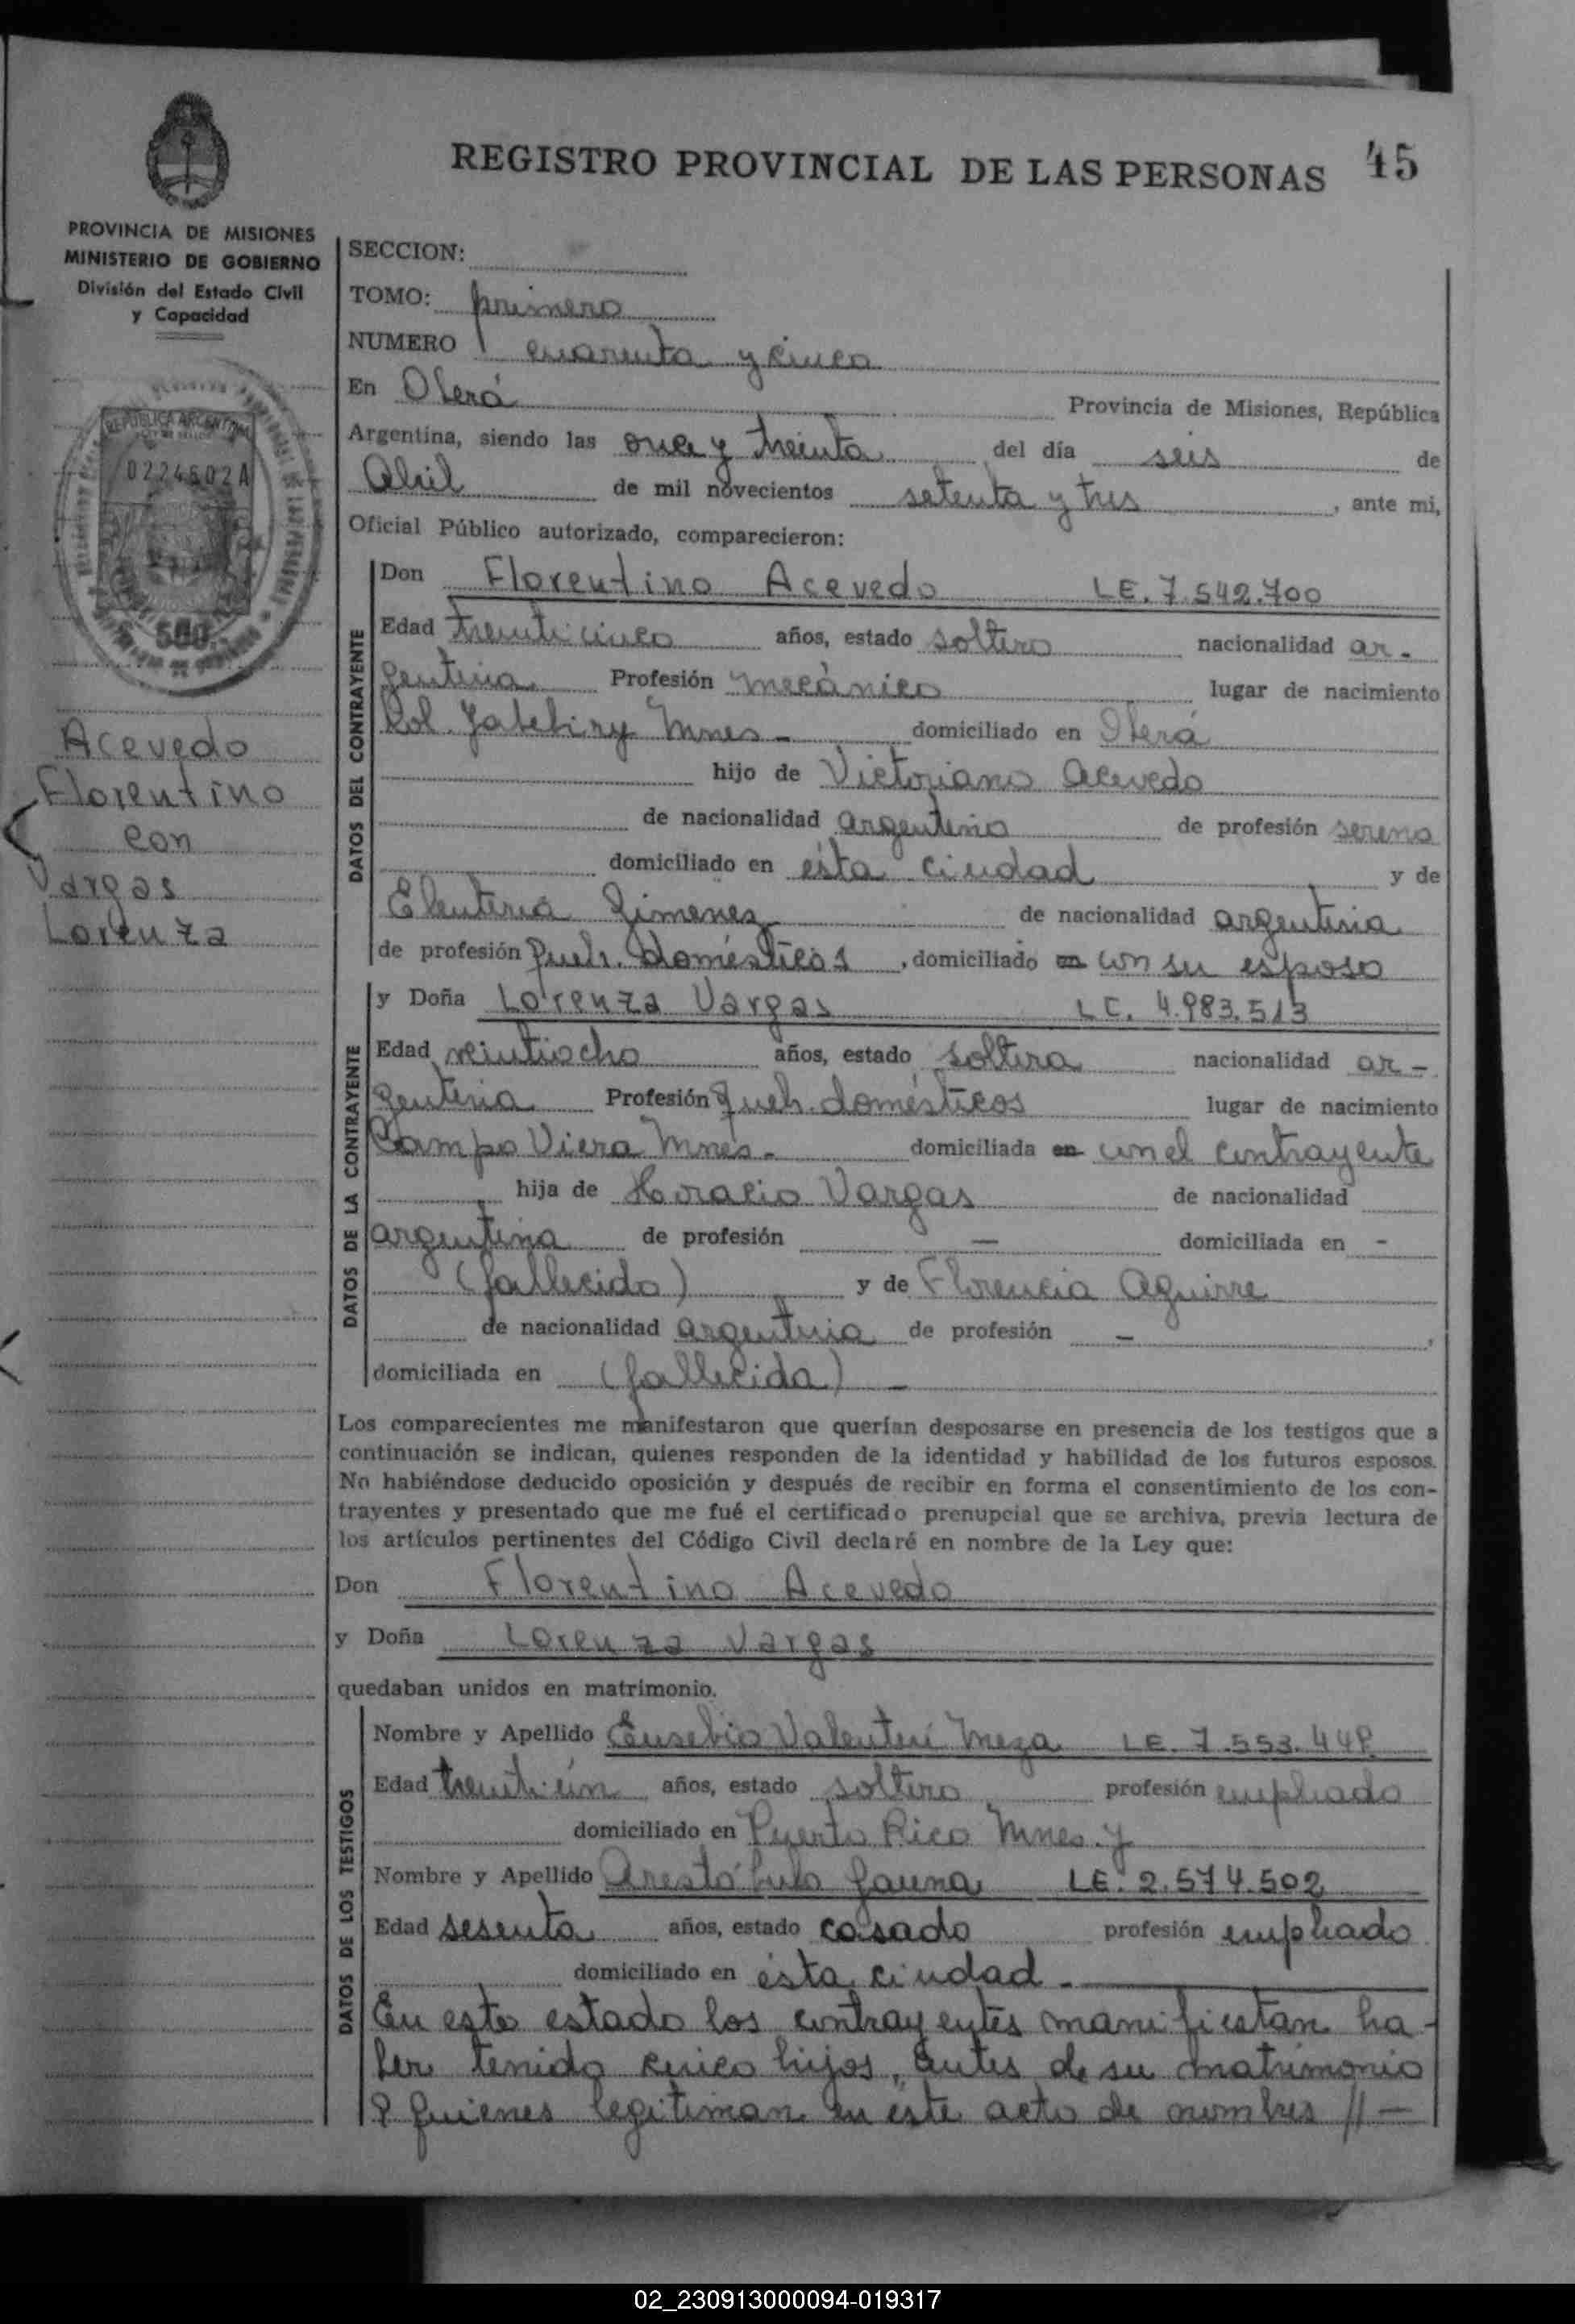 REGISTRO PROVINCIAL DE LAS PERSONAS 45
PROVINCIA DE MISIONES
MINISTERIO DE GOBIERNO
División del Estado Civil
y Capacidad
REPUBLICA ARGENTINA
0224602A
500
Acevedo
Florentino
con
Vargas
Lorenza
SECCION:
TOMO: primero
NUMERO cuarenta y cinco
En Oberá Provincia de Misiones, República
Argentina, siendo las once y treinta del día seis de
Abril de mil novecientos setenta y tres, ante mi,
Oficial Público autorizado, comparecieron:
DATOS DEL CONTRAYENTE
Don Florentino Acevedo LE. 7.542.700
Edad treinticinco años, estado soltero nacionalidad ar-
gentina Profesión mecánico lugar de nacimiento
Col. Yabebiry Mnes- domiciliado en Oberá
hijo de Victoriano Acevedo
de nacionalidad argentino de profesión sereno
domiciliado en ésta ciudad y de
Eleuteria Gimenez de nacionalidad argentina
de profesión Queh. domésticos, domiciliado en con su esposo
DATOS DE LA CONTRAYENTE
y Doña Lorenza Vargas LC. 4.983.513
Edad veintiocho años, estado soltera nacionalidad ar-
gentina Profesión Queh. domésticos lugar de nacimiento
Campo Viera Mnes.- domiciliada en con el contrayente
hija de Horacio Vargas de nacionalidad
argentina de profesión — domiciliada en -
(fallecido) y de Florencia Aguirre
de nacionalidad argentina de profesión — ,
domiciliada en (fallecida) -
Los comparecientes me manifestaron que querían desposarse en presencia de los testigos que a
continuación se indican, quienes responden de la identidad y habilidad de los futuros esposos.
No habiéndose deducido oposición y después de recibir en forma el consentimiento de los con-
trayentes y presentado que me fué el certificado prenupcial que se archiva, previa lectura de
los artículos pertinentes del Código Civil declaré en nombre de la Ley que:
Don Florentino Acevedo
y Doña Lorenza Vargas
quedaban unidos en matrimonio.
DATOS DE LOS TESTIGOS
Nombre y Apellido Eusebio Valentín Meza LE. 7.553.448
Edad treintiún años, estado soltero profesión empleado
domiciliado en Puerto Rico Mnes. y
Nombre y Apellido Arestóbulo Gauna LE. 2.574.502
Edad sesenta años, estado casado profesión empleado
domiciliado en ésta ciudad.-
En este estado los contrayentes manifiestan ha-
ber tenido cinco hijos, antes de su matrimonio
a quienes legitiman en éste acto de nombres //-
02_230913000094-019317